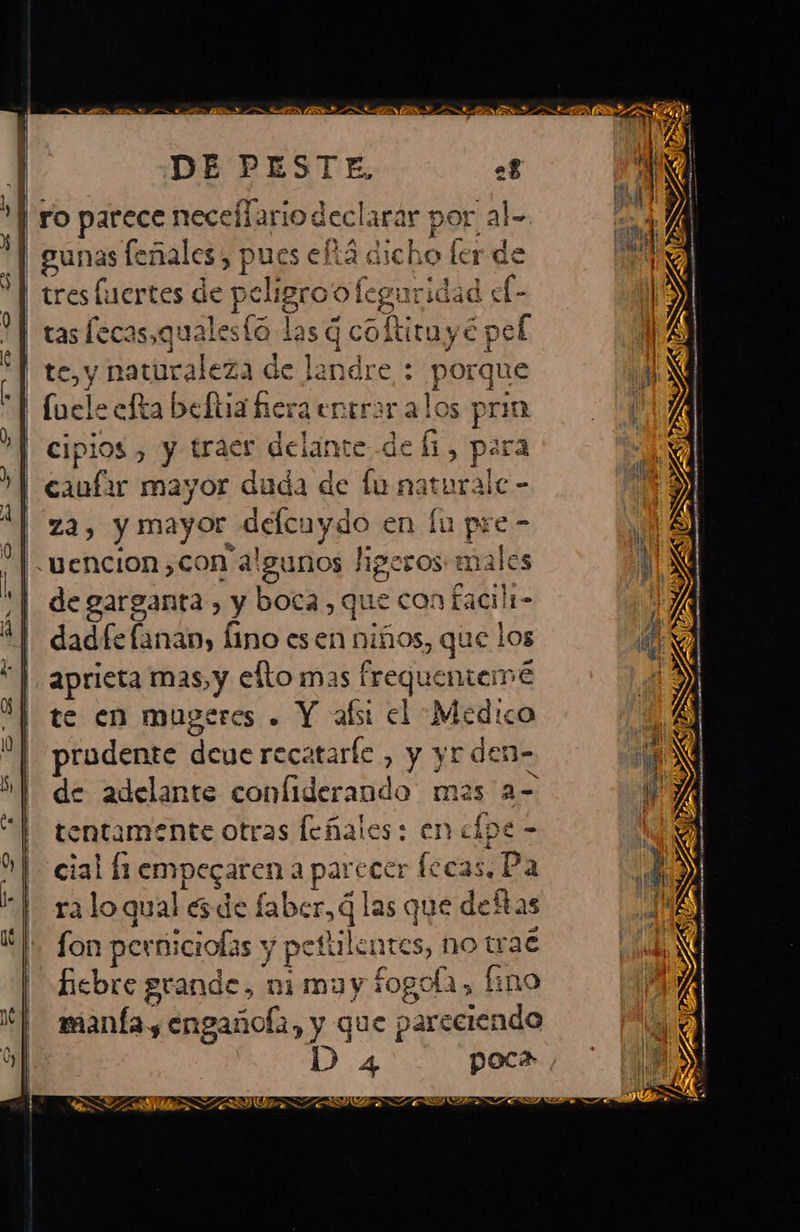 DE PESTE. 28
ro parece neceſſario declarar por al-
gunas ſeñales, pues eſtá dicho ſer de
tres ſuertes de peligro o ſeguridad eſ-
tas ſecas, quales ſõ las q̃ cõſtituyẽ peſ
te, y naturaleza de landre : porque
ſuele eſta beſtia fiera entrar a los prin
cipios, y traer delante de ſi, para
cauſar mayor duda de ſu naturale-
za, y mayor deſcuydo en ſu pre-
uencion, con algunos ligeros males
de garganta, y boca, que con facili-
dad ſe ſanan, ſino es en niños, que los
aprieta mas, y eſto mas frequentemẽ
te en mugeres. Y aſsi el Medico
prudente deue recatarſe, y yr den-
de adelante conſiderando mas a-
tentamente otras ſeñales: en eſpe-
cial ſi empeçaren a parecer ſecas. Pa
ra lo qual es de ſaber, q̃ las que deſtas
ſon pernicioſas y peſtilentes, no traẽ
fiebre grande, ni muy fogoſa, ſino
manſa, engañoſa, y que pareciendo
D 4 poca